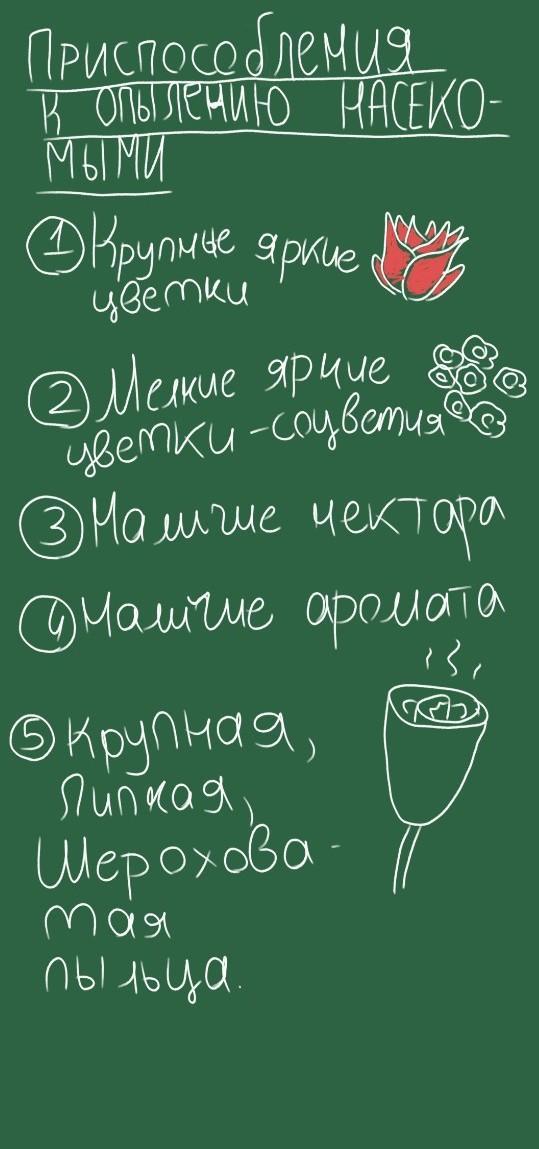 Приспособления
к опылению НАСЕКО-
МЫМИ
1 Крупные яркие
цветки
2 Мелкие яркие
цветки-соцветия
3 Наличие нектара
4 Наличие аромата
5 Крупная,
липкая,
шерохова-
тая
пыльца.